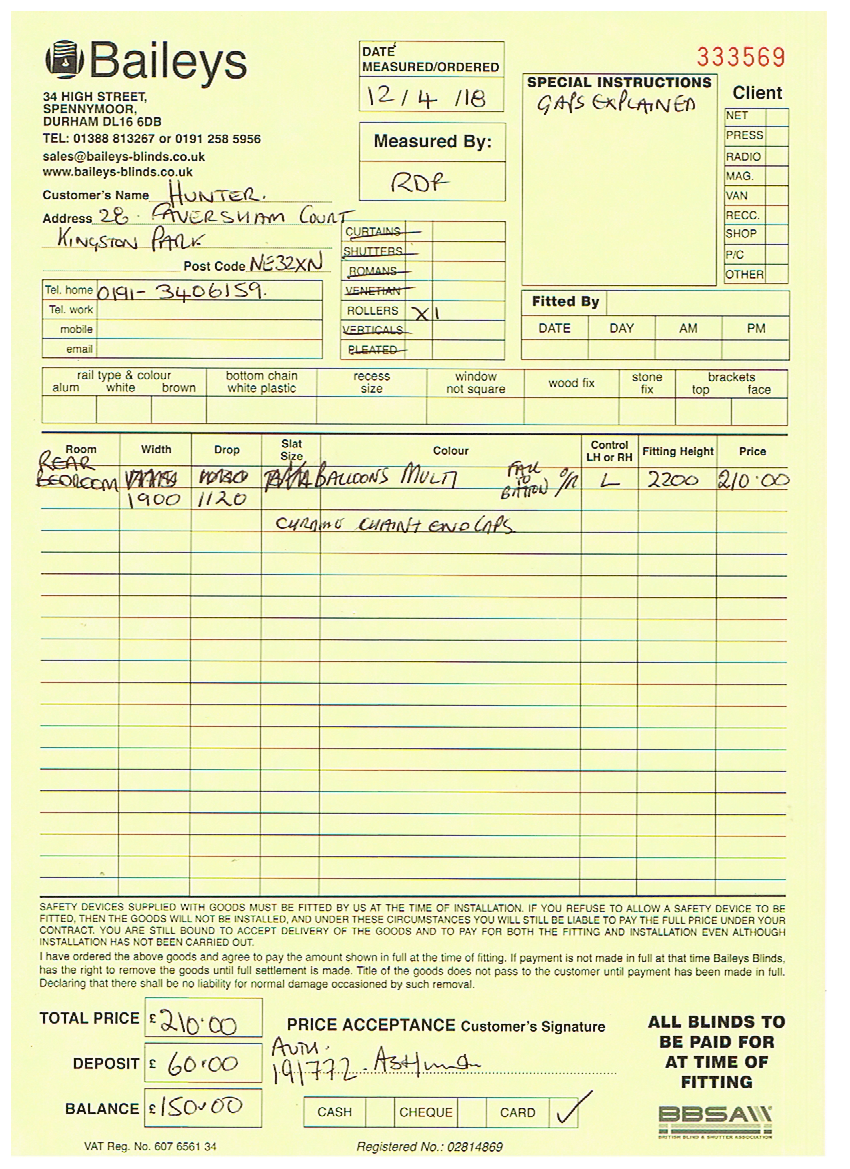 Baileys
34 HIGH STREET,
SPENNYMOOR,
DURHAM DL16 6DB
TEL: 01388 813267 or 0191 258 5956
sales@baileys-blinds.co.uk
www.baileys-blinds.co.uk
DATE
MEASURED/ORDERED
12/4/18
Measured By:
RDF
333569
SPECIAL INSTRUCTIONS
GAPS EXPLAINED
Client
NET
PRESS
RADIO
MAG.
VAN
RECC.
SHOP
P/C
OTHER
Customer's Name HUNTER.
Address 28 FAVERSHAM COURT
KINGSTON PARK
Post Code NE32XN
Tel. home 0191-3406159.
Tel. work
mobile
email
CURTAINS
SHUTTERS
ROMANS
VENETIAN
ROLLERS X1
VERTICALS
PLEATED
Fitted By
DATE DAY AM PM
rail type & colour
alum white brown
bottom chain
white plastic
recess
size
window
not square
wood fix
stone
fix
brackets
top face
Room Width Drop Slat Size Colour Control LH or RH Fitting Height Price
REAR
BEDROOM BALLOONS MULTI O/R L 2200 210.00
1900 1120
CHROME CHAIN + END CAPS
SAFETY DEVICES SUPPLIED WITH GOODS MUST BE FITTED BY US AT THE TIME OF INSTALLATION. IF YOU REFUSE TO ALLOW A SAFETY DEVICE TO BE
FITTED, THEN THE GOODS WILL NOT BE INSTALLED, AND UNDER THESE CIRCUMSTANCES YOU WILL STILL BE LIABLE TO PAY THE FULL PRICE UNDER YOUR
CONTRACT. YOU ARE STILL BOUND TO ACCEPT DELIVERY OF THE GOODS AND TO PAY FOR BOTH THE FITTING AND INSTALLATION EVEN ALTHOUGH
INSTALLATION HAS NOT BEEN CARRIED OUT.
I have ordered the above goods and agree to pay the amount shown in full at the time of fitting. If payment is not made in full at that time Baileys Blinds,
has the right to remove the goods until full settlement is made. Title of the goods does not pass to the customer until payment has been made in full.
Declaring that there shall be no liability for normal damage occasioned by such removal.
TOTAL PRICE £210.00
DEPOSIT £ 60.00
BALANCE £150.00
PRICE ACCEPTANCE Customer's Signature
AUTH.
191772.
CASH CHEQUE CARD ✓
ALL BLINDS TO
BE PAID FOR
AT TIME OF
FITTING
BBSA
BRITISH BLIND & SHUTTER ASSOCIATION
VAT Reg. No. 607 6561 34
Registered No.: 02814869